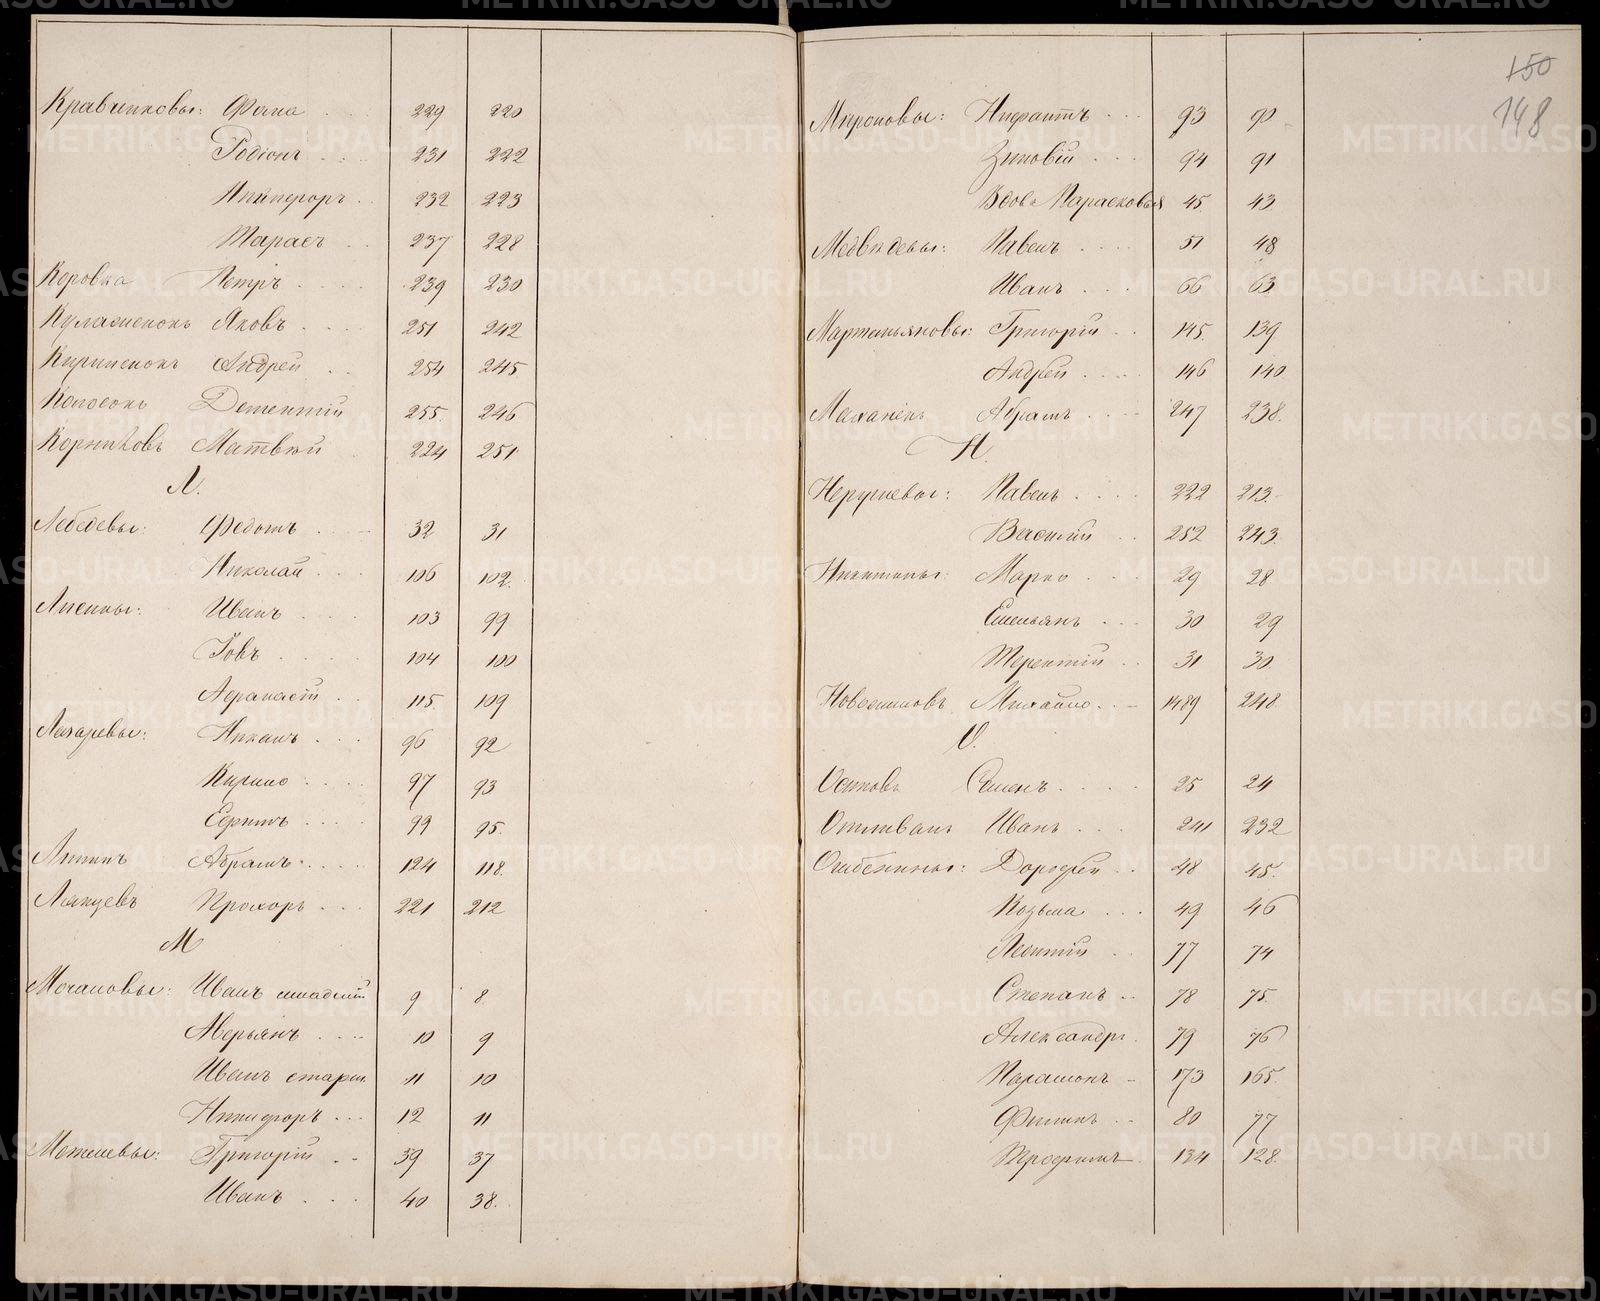 Кравченковы: Фома 229 220
Родіонъ 231 222
Никифоръ 232 223
Тарасъ 237 228
Коровка Петръ 239 230
Яковъ 251 242
Андрей 254 245
Колосокъ 255 246
Корниловъ Матвѣй 224 251
Л.
Лебедевы: Федотъ 32 31
Николай 106 102
Лисины: Иванъ 103 99
Іовъ 104 100
Афанасій 115 109
Лазаревы: Никонъ 96 92
Кирило 97 93
Ефимъ 99 95
Литинъ Абрамъ 124 118
Прохоръ 221 212
М
Мочаловы: Иванъ младшій 9 8
Аверьянъ 10 9
Иванъ старш 11 10
Никифоръ 12 11
Григорій 39 37
Иванъ 40 38
150
148
Мироновы: Нифантъ 93 90
Зиновій 94 91
Вдова Парасковья 45 43
Медвѣдевы: Павелъ 51 48
Иванъ 66 63
Мартемьяновы: Григорій 145 139
Андрей 146 140
Абрамъ 247 238
Н.
Павелъ 222 213
Василій 252 243
Никитины: Марко 29 28
Емельянъ 30 29
Терентій 31 30
Михайло 1489 248
О.
Осиповъ Семенъ 25 24
Иванъ 241 232
Дорофей 48 45
Козьма 49 46
Леонтій 77 74
Степанъ 78 75
Александръ 79 76
Парамонъ 173 165
Филипъ 80 77
Трофимъ 134 128
METRIKI.GASO-URAL.RU